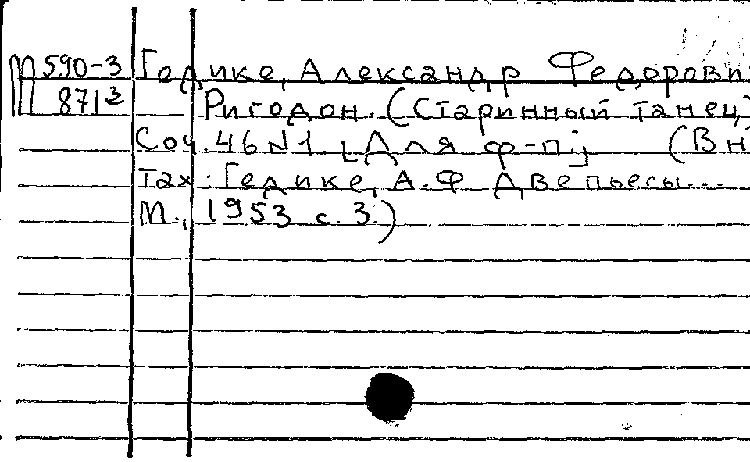 М 590-3 Гедике, Александр Федорови
871³ Ригодон. (Старинный танец)
Соч. 46 N 1 [Для ф-п.] (В н
тах: Гедике, А.Ф Две пьесы...
М., 1953 с. 3.)